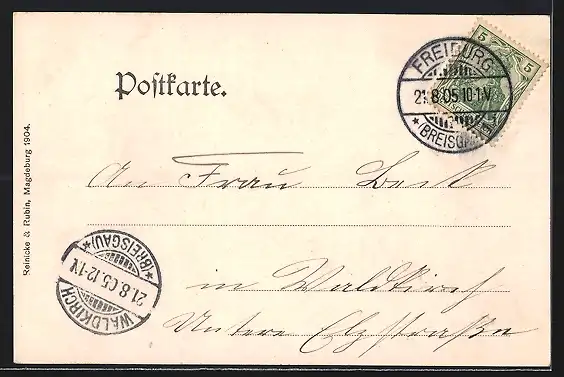 Postkarte.
5 5
FREIBURG
21.8.05.10-1.V.
*(BREISGAU)
An Frau Beck
in Waldkirch
Untere Elzstraße
WALDKIRCH
21.8.05.12-1N.
*(BREISGAU)*
Reinicke & Rubin, Magdeburg 1904.